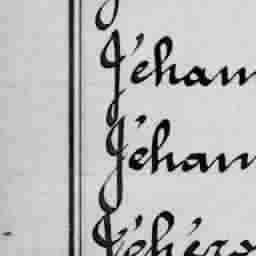 Jéham
Jéham
Jéhéro